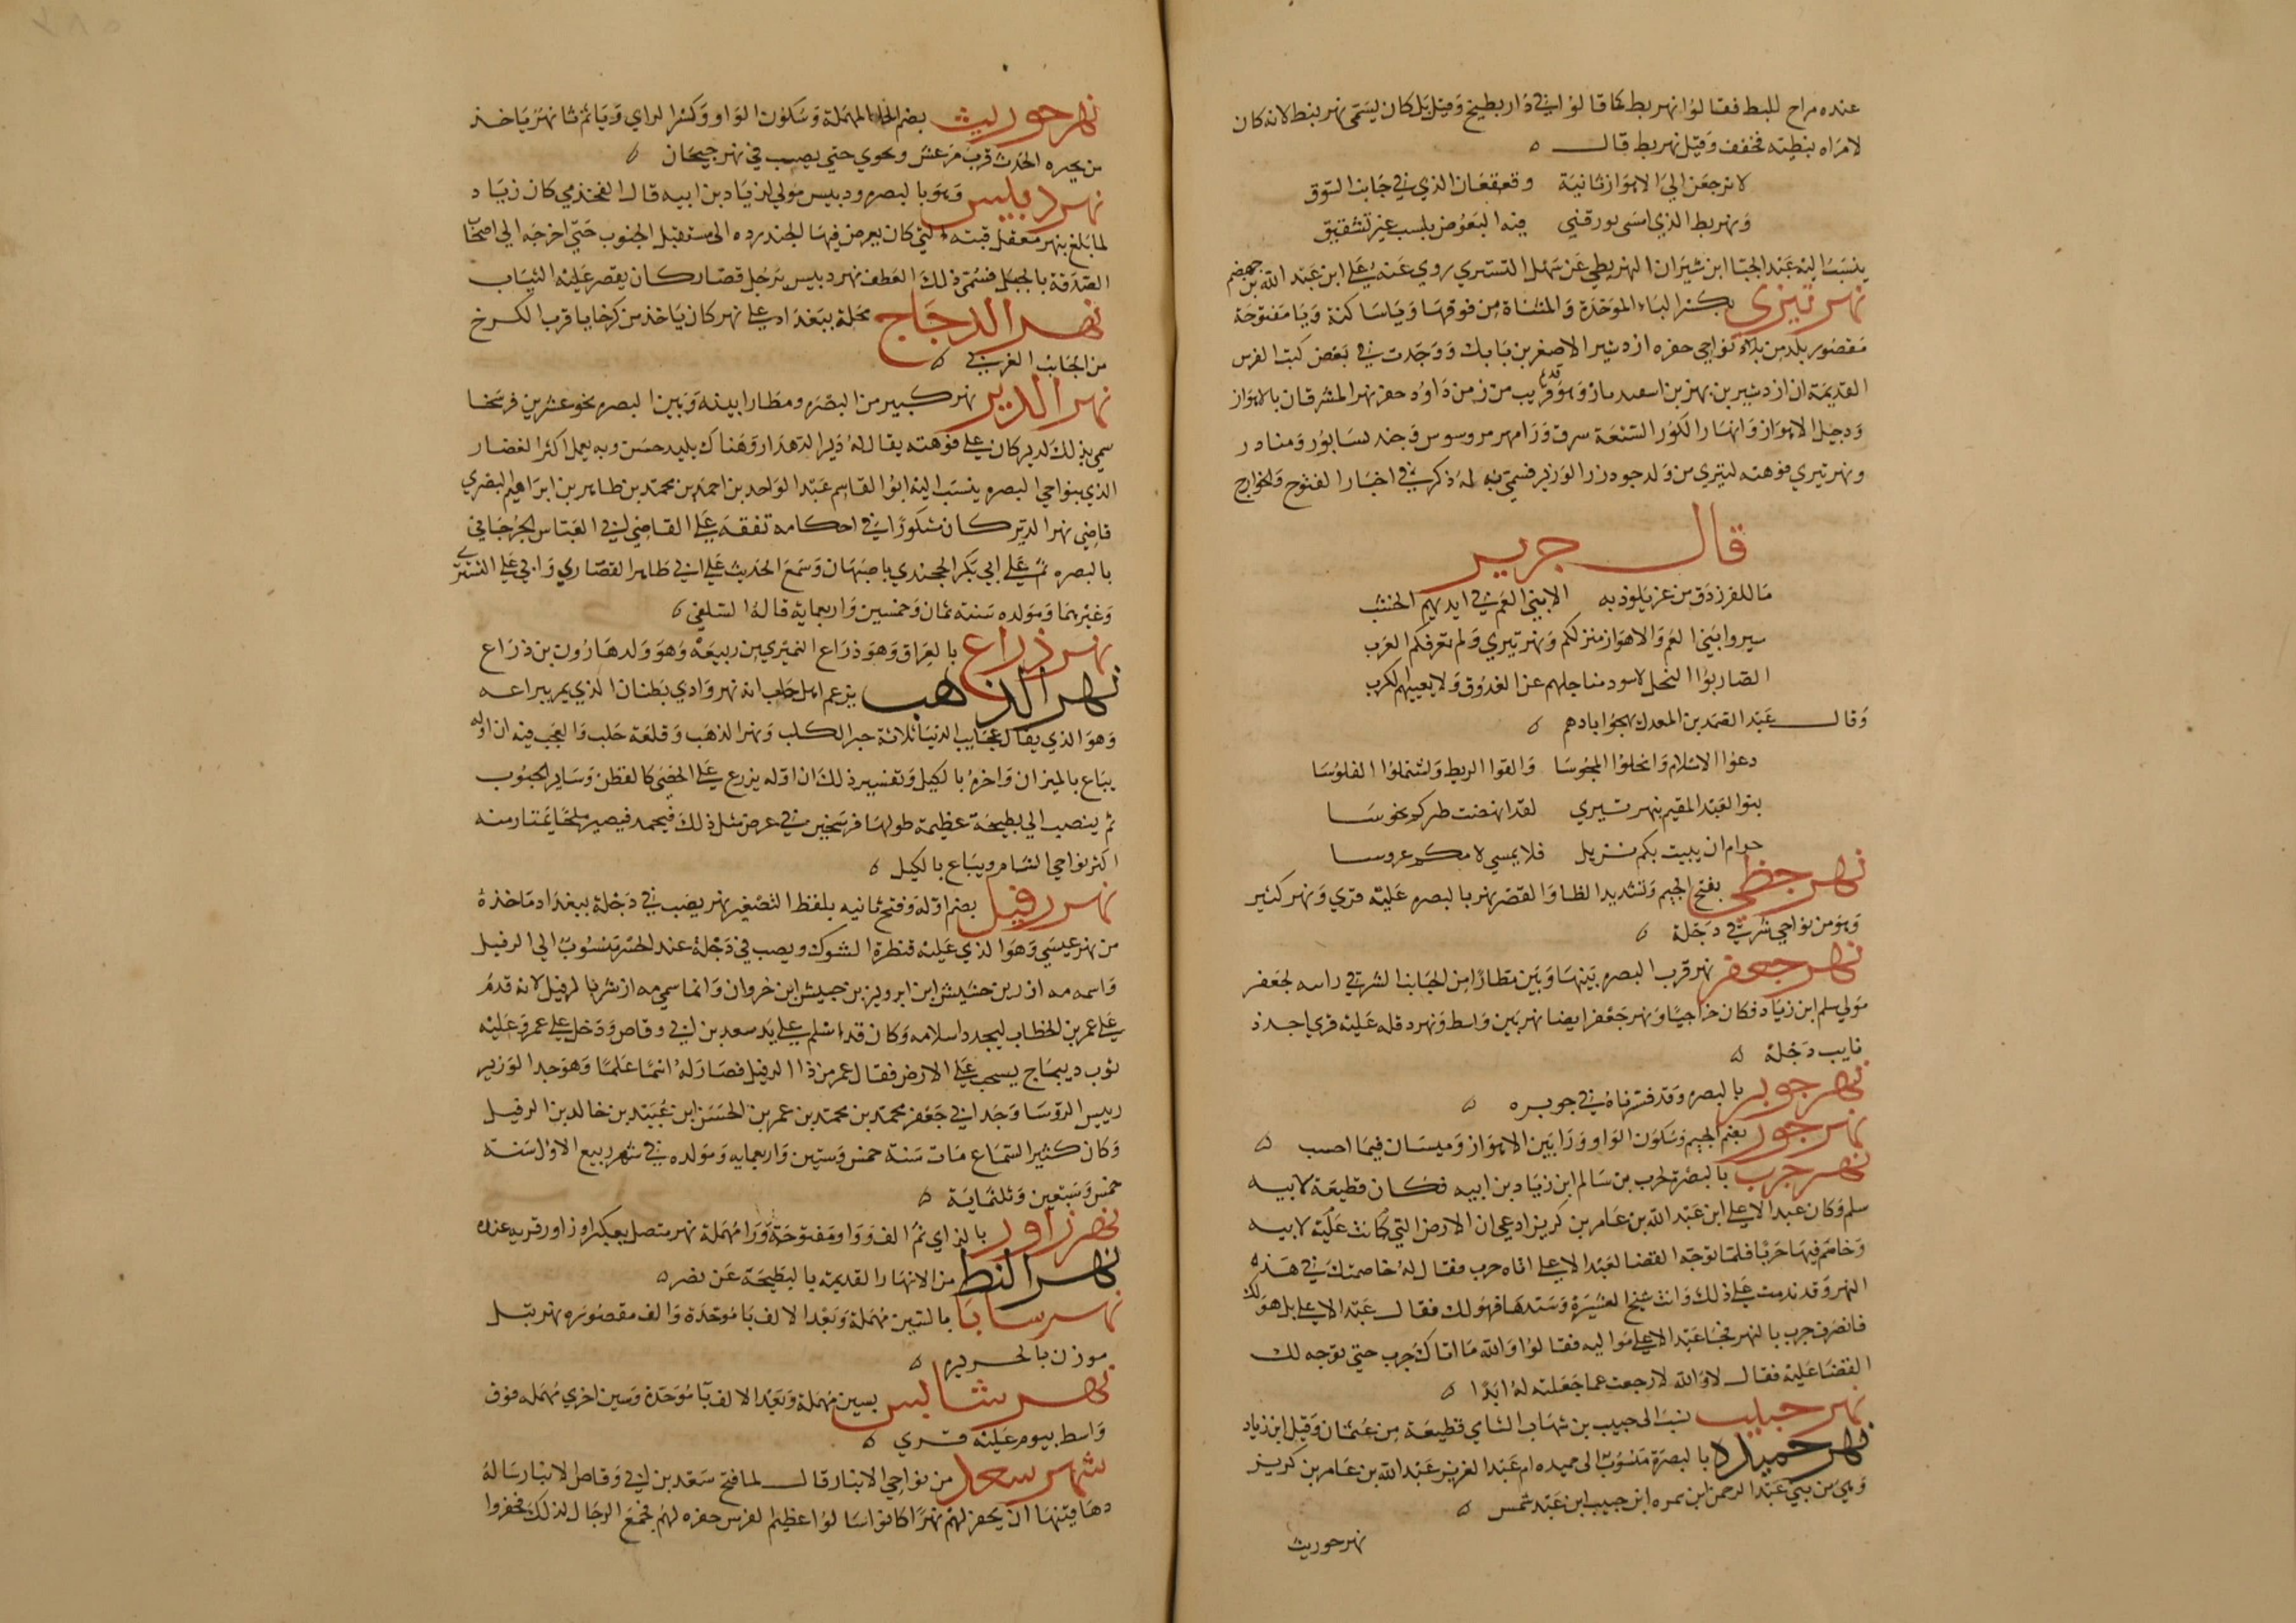 عنده مراح للبط فقالوا نهر بط كما قالوا في دار بطيخ وقيل بل كان يسمى نهر نبط لانه كان
لامراه نبطيه فخفف وقيل نهر بط قال
لا ترجعن الي الاهواز ثانية وقعقعان الذي في جانب السوق
ونهر بط الذي امسى يورقني فيه البعوض بلسب غير تشقيق
ينسب اليه عبد الجبا ابن شيران النهربطي عن سهل التستري روي عنه علي ابن عبد الله بن جهضم
نهر تيري بكسر التاء المثناة من فوقها ويا ساكنة ويا مفتوحة
مقصور بلد من نواحي حفره ازدشير الاصغر بن بابك ووجدت في بعض كتب الفرس
القديمة ان ازدشير بن بهمن بن اسفنديار وهو قديم قريب من زمن داود حفر نهر المشرقان بالاهواز
ودجيل الاهواز وانهار الكور التسعة سرق ورامهرمز وسوس وجندسابور ومناذر
ونهر تيري فوهته لتيري من ولد جودرز الوزير فسمي به له ذكر في اخبار الفتوح والخوارج
قال جرير
ما للفرزدق من عز يلوذ به الا بني العم في ايديهم الخشب
سيروا بني العم والاهواز منزلكم ونهر تيري ولم تعرفكم العرب
الضاربوا النخل لا سود مناجلهم عن العذوق ولا يعييهم الكرب
وقال عبد الصمد بن المعدل يهجوا بادهم
دعوا الاسلام وانحلوا المجوسا والقوا الريط واشتملوا القلوسا
بنوا العبد المقيم بنهر تيري لقد انهضت طيركم نحوسا
حرام ان يبيت بكم نزيل فلا يمسي لامكم عروسا
نهر جظي بفتح الجيم وتشديد الظا والقصر نهر بالبصره عليه قري ونهر كثير
وهو من نواحي شرقي دجلة
نهر جعفر نهر قرب البصره بينها وبين مطارا من الجانب الشرقي راسه لجعفر
مولي سلم ابن زياد فكان خراجيا ونهر جعفر ايضا نهر بين واسط ونهر دقله عليه قري احد ذ
نايب دجلة
نهر جوبر بالبصره وقد فسرناه في جوبره
نهر جور بضم الجيم وسكون الواو ورا بين الاهواز وميسان فيما احسب
نهر حرب بالبصرة لحرب بن سالم ابن زياد بن ابيه فكان قطيعة لابيه
سلم وكان عبد الاعلي ابن عبد الله بن عامر بن كريز ادعي ان الارض التي كانت عليه لابيه
وخاصم فيها حربا فلما توجه القضا لعبد الاعلي اتاه حرب فقال له خاصمتك في هذه
النهر وقد ندمت علي ذلك وانت شيخ العشيرة وسيدها فهو لك فقال عبد الاعلي بل هو لك
فانصرف حرب بالنهر فجا عبد الاعلي مواليه فقالوا والله ما اتاك حرب حتي توجه لك
القضا عليه فقال لا والله لا رجعت عما جعلته له ابدا
نهر حبيب نسب الى حبيب بن شهاب الشاي قطيعة من عثمان وقيل ابن زياد
نهر حميده بالبصرة منسوب الى حميده ام عبد العزيز عبد الله بن عامر بن كريز
وهي من بني عبد الرحمن ابن سمره ابن حبيب ابن عبد شمس
نهر حوريث
نهر حوريث بضم الحاء المهملة وسكون الواو وكسر الراي ويا ثم ثا نهر ياخذ
من بحيره الحدث قرب مرعش ويجري حتي يصب في نهر جيحان
نهر دبيس وهو بالبصره ودبيس مولي لزياد بن ابيه قال القحذمي كان زياد
لما بلغ بنهر معقل قبته التي كان يعرض فيها الجند رده الى مستقبل الجنوب حتي اخرجه الي اصحاب
الصدقة بالجبل فسمى ذلك العطف نهر دبيس برجل قصار كان يقصر عليه الثياب
نهر الدجاج محلة ببغداد علي نهر كان ياخذ من كرخايا قرب الكرخ
من الجانب الغربي
نهر الدير نهر كبير من البصره ومطارا بينه وبين البصره نحو عشرين فرسخا
سمي بذلك لدير كان علي فوهته يقال له دير الدهدار وهناك بليد حسن وبه يعمل اكثر الغضار
الذي بنواحي البصره ينسب اليه ابو القاسم عبد الواحد بن احمد بن محمد بن طاهر بن ابراهيم البصري
قاضي نهر الدير كان مشكورا في احكامه تفقه علي القاضي ابي العباس الجرجاني
بالبصره ثم علي ابي بكر الخجندي باصبهان وسمع الحديث علي ابي طاهر القصاري وابي علي التستري
وغيرهما ومولده سنة ثمان وخمسين واربعماية قاله السلفي
نهر ذراع بالعراق وهو ذراع النميري من ربيعة وهو ولد هارون بن ذراع
نهر الذهب يزعم اهل حلب انه نهر وادي بطنان الذي يمر ببزاعه
وهو الذي يقال عجايب الدنيا ثلاثة جب الكلب ونهر الذهب وقلعة حلب والعجب فيه ان اوله
يباع بالميزان واخره بالكيل وتفسير ذلك ان اوله يزرع علي الحصي كالقطن وساير الحبوب
ثم ينصب الي بطيحة عظيمة طولها فرسخين في عرض مثل ذلك فيجمد فيصير ملحا يمتار منه
اكثر نواحي الشام ويباع بالكيل
نهر رفيل بضم اوله وفتح ثانيه بلفظ التصغير نهر يصب في دجلة ببغداد ماخذه
من نهر عيسي وهو الذي عليه قنطرة الشوك ويصب في دجلة عند الجسر منسوب الي الرفيل
واسمه مه ازر بن حشيش ابن ابرويز بن جيش ابن خروان وانما سمي مه ازشر بالرفيل لانه قدم
علي عمر بن الخطاب ليجدد اسلامه وكان قد اسلم علي يد سعد بن ابي وقاص ودخل علي عمر وعليه
ثوب ديباج يسحب علي الارض فقال عمر من ذا الرفيل فصار له اسما علما وهو جد الوزير
رييس الروسا وجد ابي جعفر محمد بن محمد بن عمر بن الحسن ابن عبيد بن خالد بن الرفيل
وكان كثير السماع مات سنة خمس وستين واربعمايه ومولده في شهر ربيع الاول سنة
خمس وسبعين وثلثماية
نهر زاور بالزاي ثم الف وواو مفتوحة ورا مهملة نهر متصل بعكبرا وزاور قريه عنده
نهر الزط من الانهار القديمة بالبطيحة عن نصر
نهر سابا بالسين مهملة وبعد الالف با موحدة والف مقصوره نهر بتل
موزن بالجزيره
نهر سابس بسين مهملة وبعد الالف با موحدة وسين اخري مهمله فوق
واسط بيوم عليه قري
نهر سعد من نواحي الانبار قال لما فتح سعد بن ابي وقاص الانبار ساله
دهاقينها ان يحفر لهم نهرا كانوا سالوا عظيم الفرس حفره لهم فجمع الرجال لذلك فحفروا